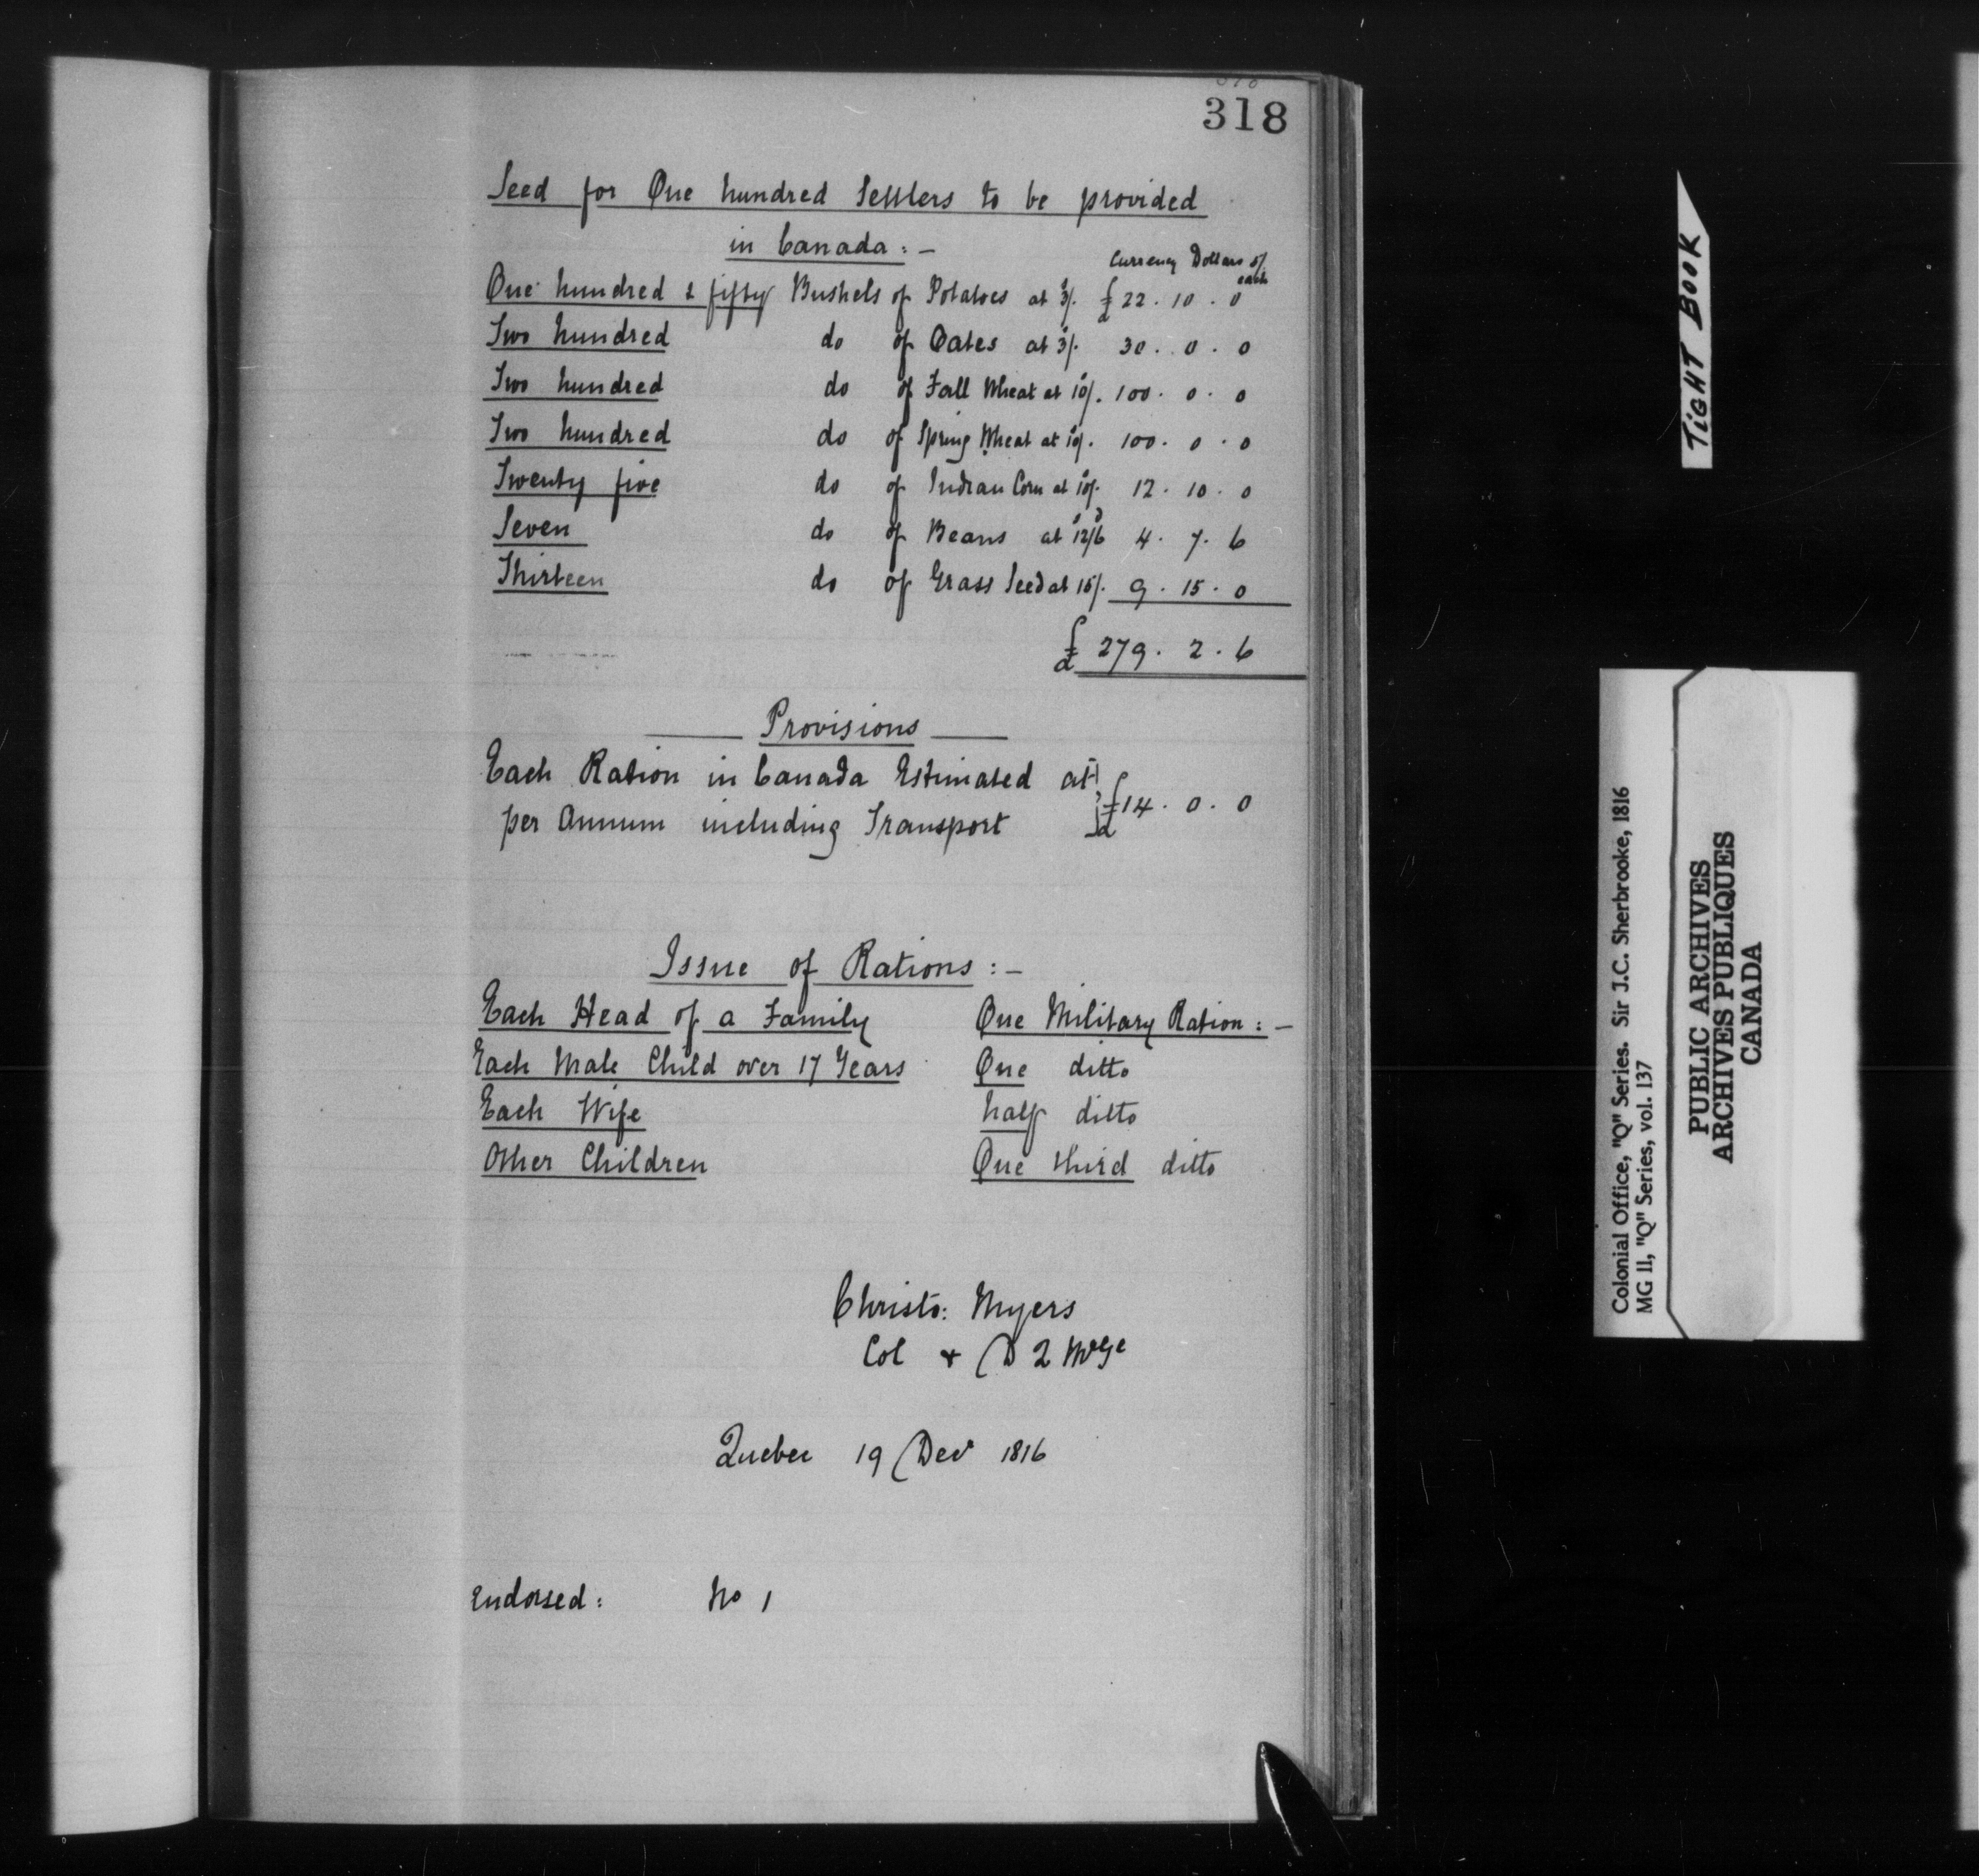 318
Seed for One hundred Settlers to be provided
in Canada : -
Currency Dollars 5/
each
One hundred & fifty Bushels of Potatoes at 3/. £22 . 10 . 0
Two hundred do of Oates at 3/. 30 . 0 . 0
Two hundred do of Fall Wheat at 10/. 100 . 0 . 0
Two hundred do of Spring Wheat at 10/. 100 . 0 . 0
Twenty five do of Indian Corn at 10/. 12 . 10 . 0
Seven do of Beans at 12/6 4 . 7 . 6
Thirteen do of Grass Seed at 15/. 9 . 15 . 0
£ 279 . 2 . 6
Provisions
Each Ration in Canada Estimated at
per Annum including Transport £14 . 0 . 0
Issue of Rations : -
Each Head of a Family One Military Ration : -
Each Male Child over 17 Years One ditto
Each Wife half ditto
Other Children One third ditto
Christo: Myers
Col & D Q M Ge
Quebec 19 Decr 1816
Endorsed : No 1
TIGHT BOOK
Colonial Office, "Q" Series. Sir J.C. Sherbrooke, 1816
MG 11, "Q" Series, vol. 137
PUBLIC ARCHIVES
ARCHIVES PUBLIQUES
CANADA